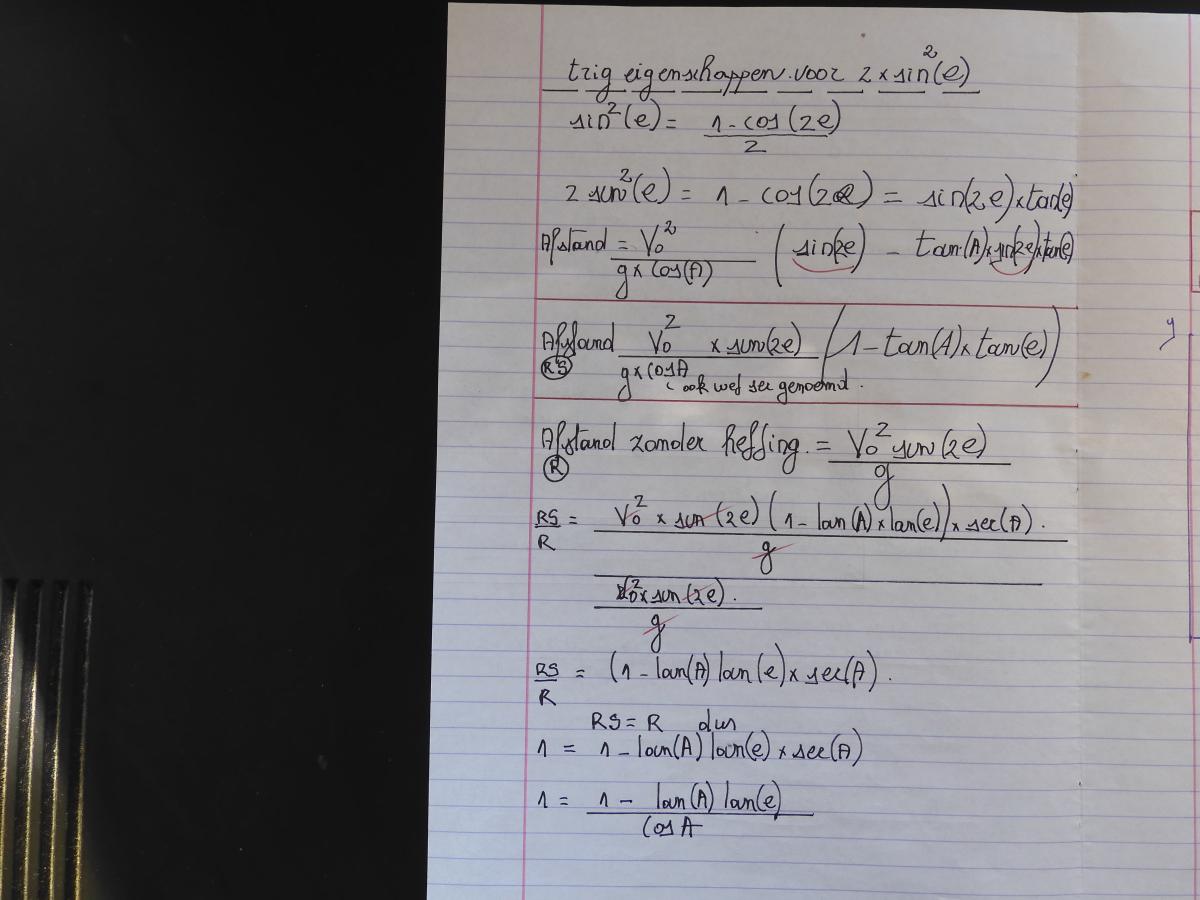 trig eigenschappen voor 2 × sin²(e)
sin²(e) = (1 - cos(2e)) / 2
2 sin²(e) = 1 - cos(2e) = sin(2e) × tan(e)
Afstand = V₀² / (g × cos(A)) (sin(2e) - tan(A) × sin(2e) × tan(e)
Afstand V₀² × sin(2e) / (g × cos A) (1 - tan(A) × tan(e))
RS
ook wel sec genoemd.
Afstand zonder heffing = V₀² sin(2e) / g
R
RS/R = V₀² × sin(2e) (1 - tan(A) × tan(e)) × sec(A). / g
V₀² × sin(2e). / g
RS/R = (1 - tan(A) tan(e) × sec(A).
RS = R dus
1 = 1 - tan(A) tan(e) × sec(A)
1 = (1 - tan(A) tan(e)) / cos A
y